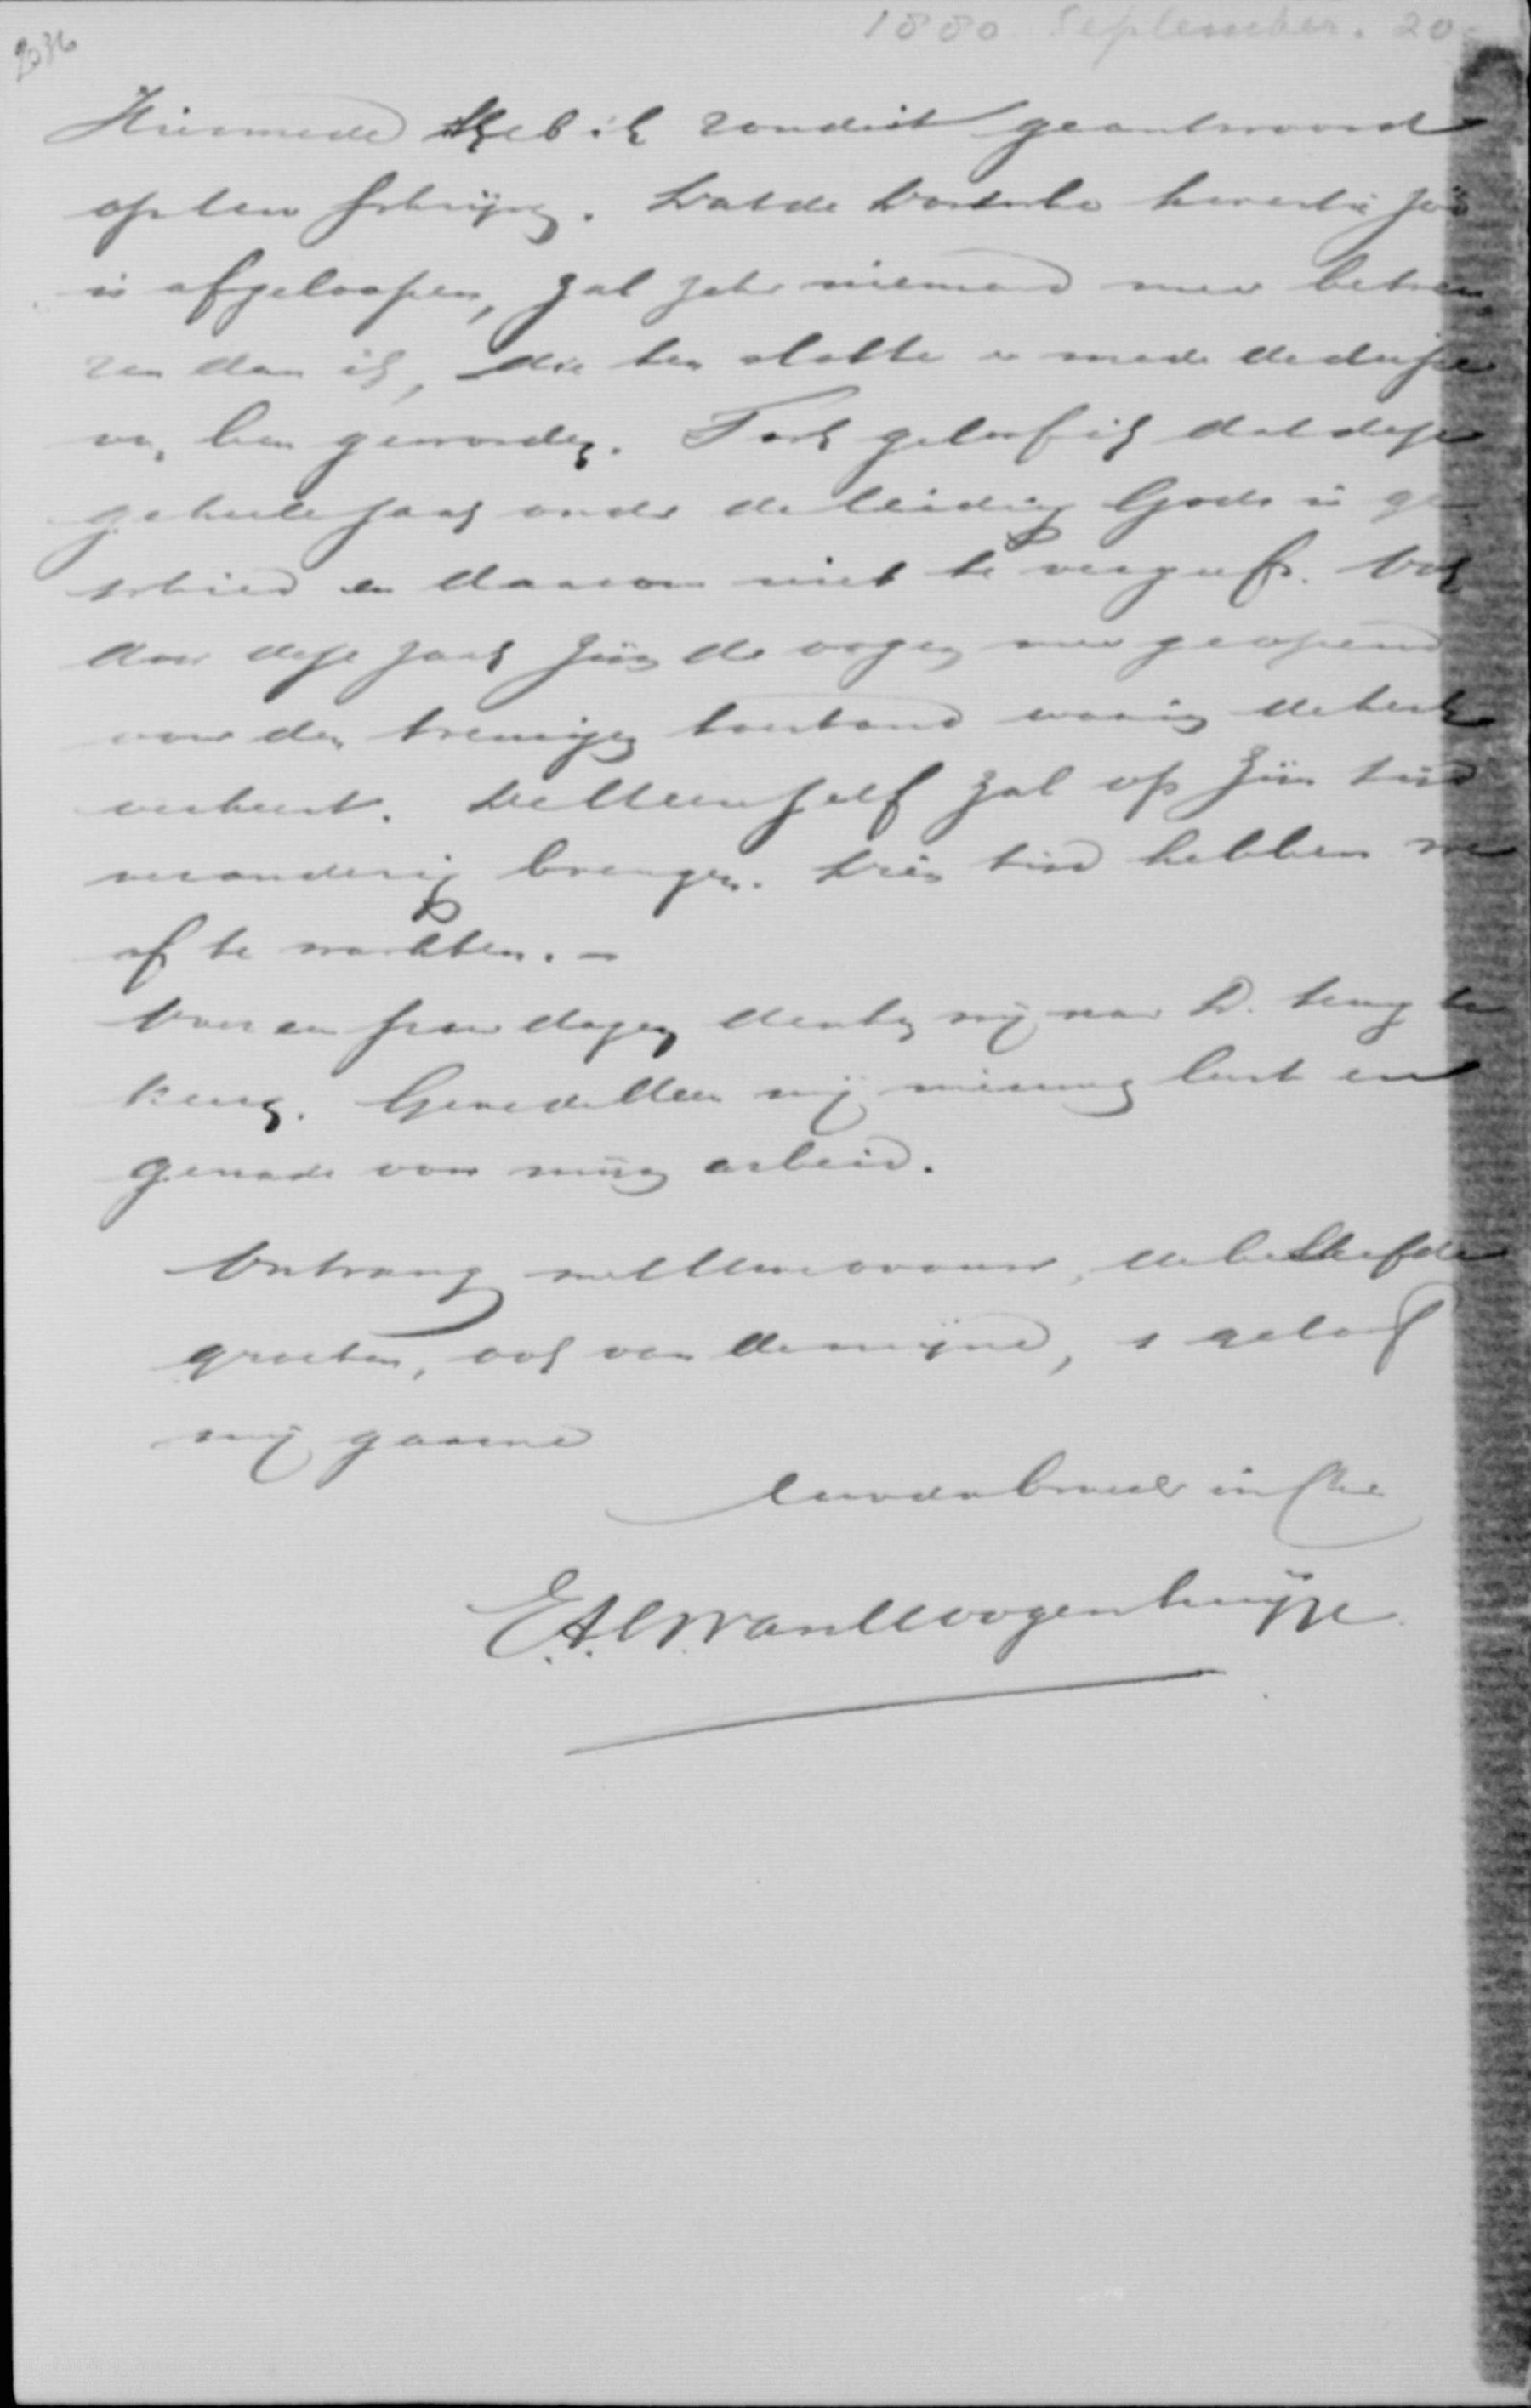 2036
1880 September. 20
Hiermede heb ik rondüit geantwoord
op Uw schrijven. Dat de Dordsche kwestie zóó
is afgeloopen, zal zeker niemand meer betreu
ren dan ik, die ten slotte er mede de dupe
van ben geworden. Toch geloof ik dat deze
geheele zaak onder de leiding Gods is ge
schied en daarom niet te vergeefs. Ook
door deze zaak zijn de oogen meer geopend
voor den treurigen toestand waarin de kerk
verkeert. De Heer zelf zal op zijn tijd
verandering brengen. Dien tijd hebben we
af te wachten. -
Over een paar dagen denken wij naar D. terug te
keeren. Geve de Heer mij nieuwe lust en
genade voor mijn arbeid.
Ontvang met Uwe vrouw, de beste liefde
groeten, ook van de mijne, & geloof
mij gaarne
Uw broeder in Chr.
E.A.G. van Hoogenhuijze